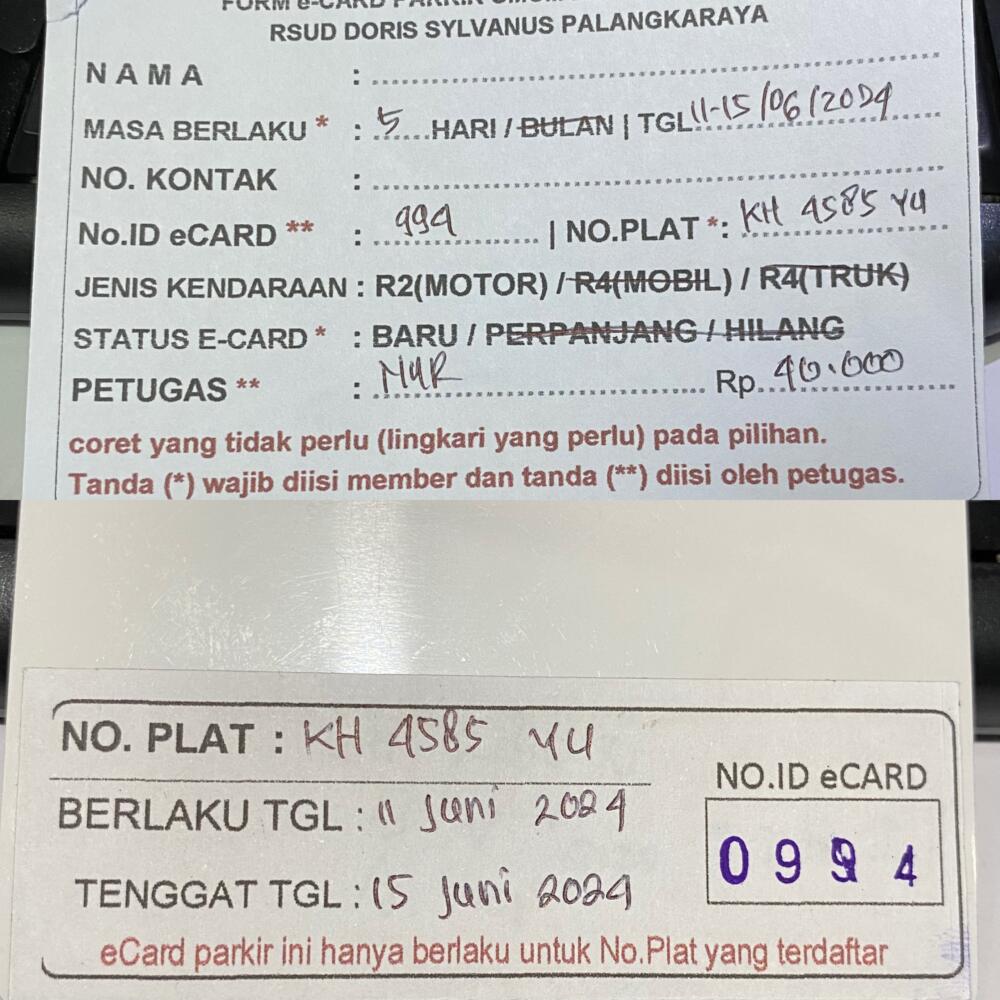 FORM e-CARD PARKIR
RSUD DORIS SYLVANUS PALANGKARAYA
NAMA :
MASA BERLAKU * : 5 HARI / BULAN | TGL 11-15/06/2024
NO. KONTAK :
No.ID eCARD ** : 994 | NO.PLAT *: KH 4585 YU
JENIS KENDARAAN : R2(MOTOR) / R4(MOBIL) / R4(TRUK)
STATUS E-CARD * : BARU / PERPANJANG / HILANG
PETUGAS ** : MYR Rp. 40.000
coret yang tidak perlu (lingkari yang perlu) pada pilihan.
Tanda (*) wajib diisi member dan tanda (**) diisi oleh petugas.
NO. PLAT : KH 4585 YU
BERLAKU TGL : 11 Juni 2024
TENGGAT TGL : 15 Juni 2024
NO.ID eCARD
0994
eCard parkir ini hanya berlaku untuk No.Plat yang terdaftar